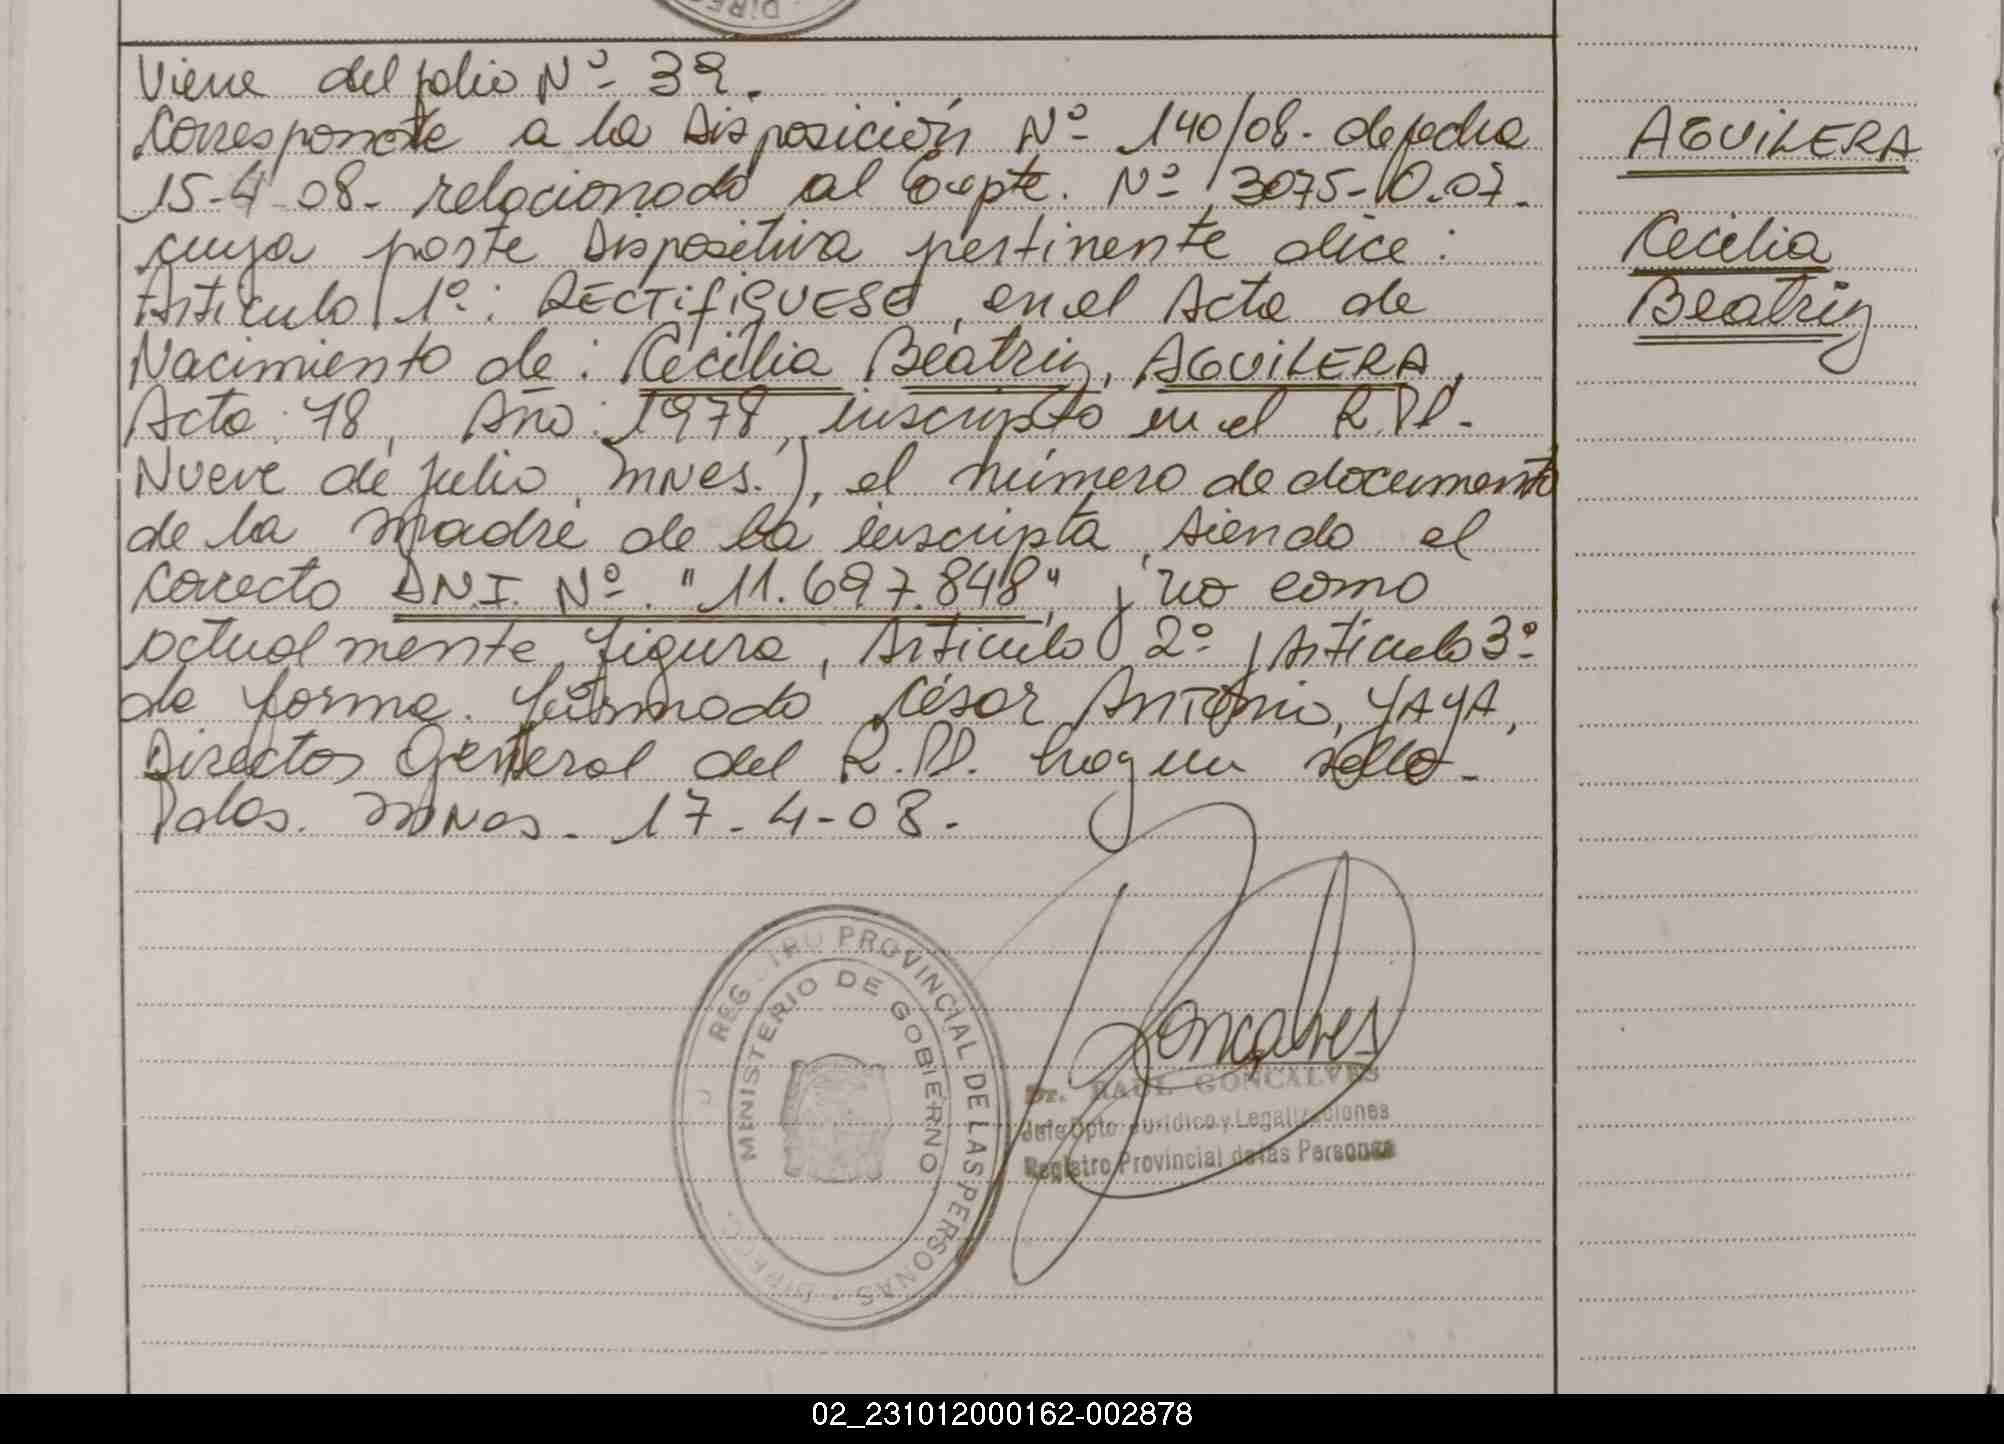 Viene del folio Nº 39.
Corresponde a la Disposición Nº 140/08. de fecha
15-4-08. relacionado al Expte. Nº 3075-O.07.
cuya parte Dispositiva pertinente dice:
Artículo 1º: RECTIFIQUESE, en el Acta de
Nacimiento de: Cecilia Beatriz, AGUILERA,
Acta: 78, Año: 1978, inscripta en el R.PP.
Nueve de Julio, Mnes.), el número de documento
de la madre de la inscripta, siendo el
correcto D.N.I. Nº. "11.697.848", y no como
actualmente figura, Artículo 2º y Artículo 3º
de forma. firmado César Antonio, YAYA,
Director General del R.PP. hay un sello-
Pdas. Mnes. 17-4-08.
AGUILERA
Cecilia
Beatriz
PROVINCIAL DE LAS PERSONAS
MINISTERIO DE GOBIERNO
Goncalves
Dr. RAUL GONCALVES
Jefe Dpto Jurídico y Legalizaciones
Registro Provincial de las Personas
02_231012000162-002878